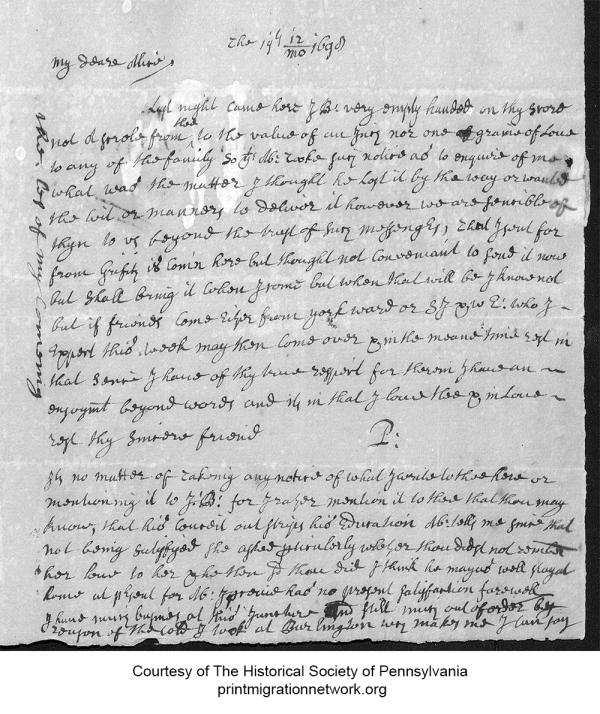 The 19th 12/mo 1698
My Deare Mine,
Last night Came here J B: very empty handed on thy Score
not a scrole from thee to the value of an Inch nor one grame of Love
to any of the family So that M: tooke such notice as to enquire of me
what was the matter I thought he Lost it by the way or wanted
the wit or manners to deliver it however we are sensible of
thyn to us beyond the trust of such messengers, that I sent for
from is Com'n here but thought not Conveniant to send it now
but shall bring it when I come but when that will be I know not
but if friends come from york ward or who I
Expect this week may then Come over & in the meane time rest in
that sence I have of thy true respect for therein I have an
enjoymt beyond words and its in that I love thee & in Love
rest thy Sincere friend P:
Its no matter of takeing any notice of what I write to thee here or
mentioning it to J:B: for I rather mention it to thee that thou may
know, that his out strips his Education M: tells me since that
not being satisfyed She asked perticularly whether thou didst not remember
her love to her & he then sd thou did I think he mayas well stayd
home at present for M: has no present satisfaction farewell
I have much buysnes at this Juncture and still much out of order by
reason of the cold I took at Burlington makes me I can say
of my Comeing
Courtesy of The Historical Society of Pennsylvania
printmigrationnetwork.org